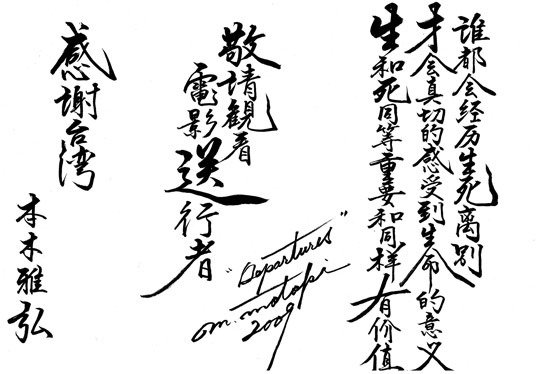 誰都会经历生死离别
才会真切的感受到生命的意义
生和死同等重要和同样有价值
敬请観看
電影送行者
"Departures"
m. motoki
2009
感謝台湾
本木雅弘